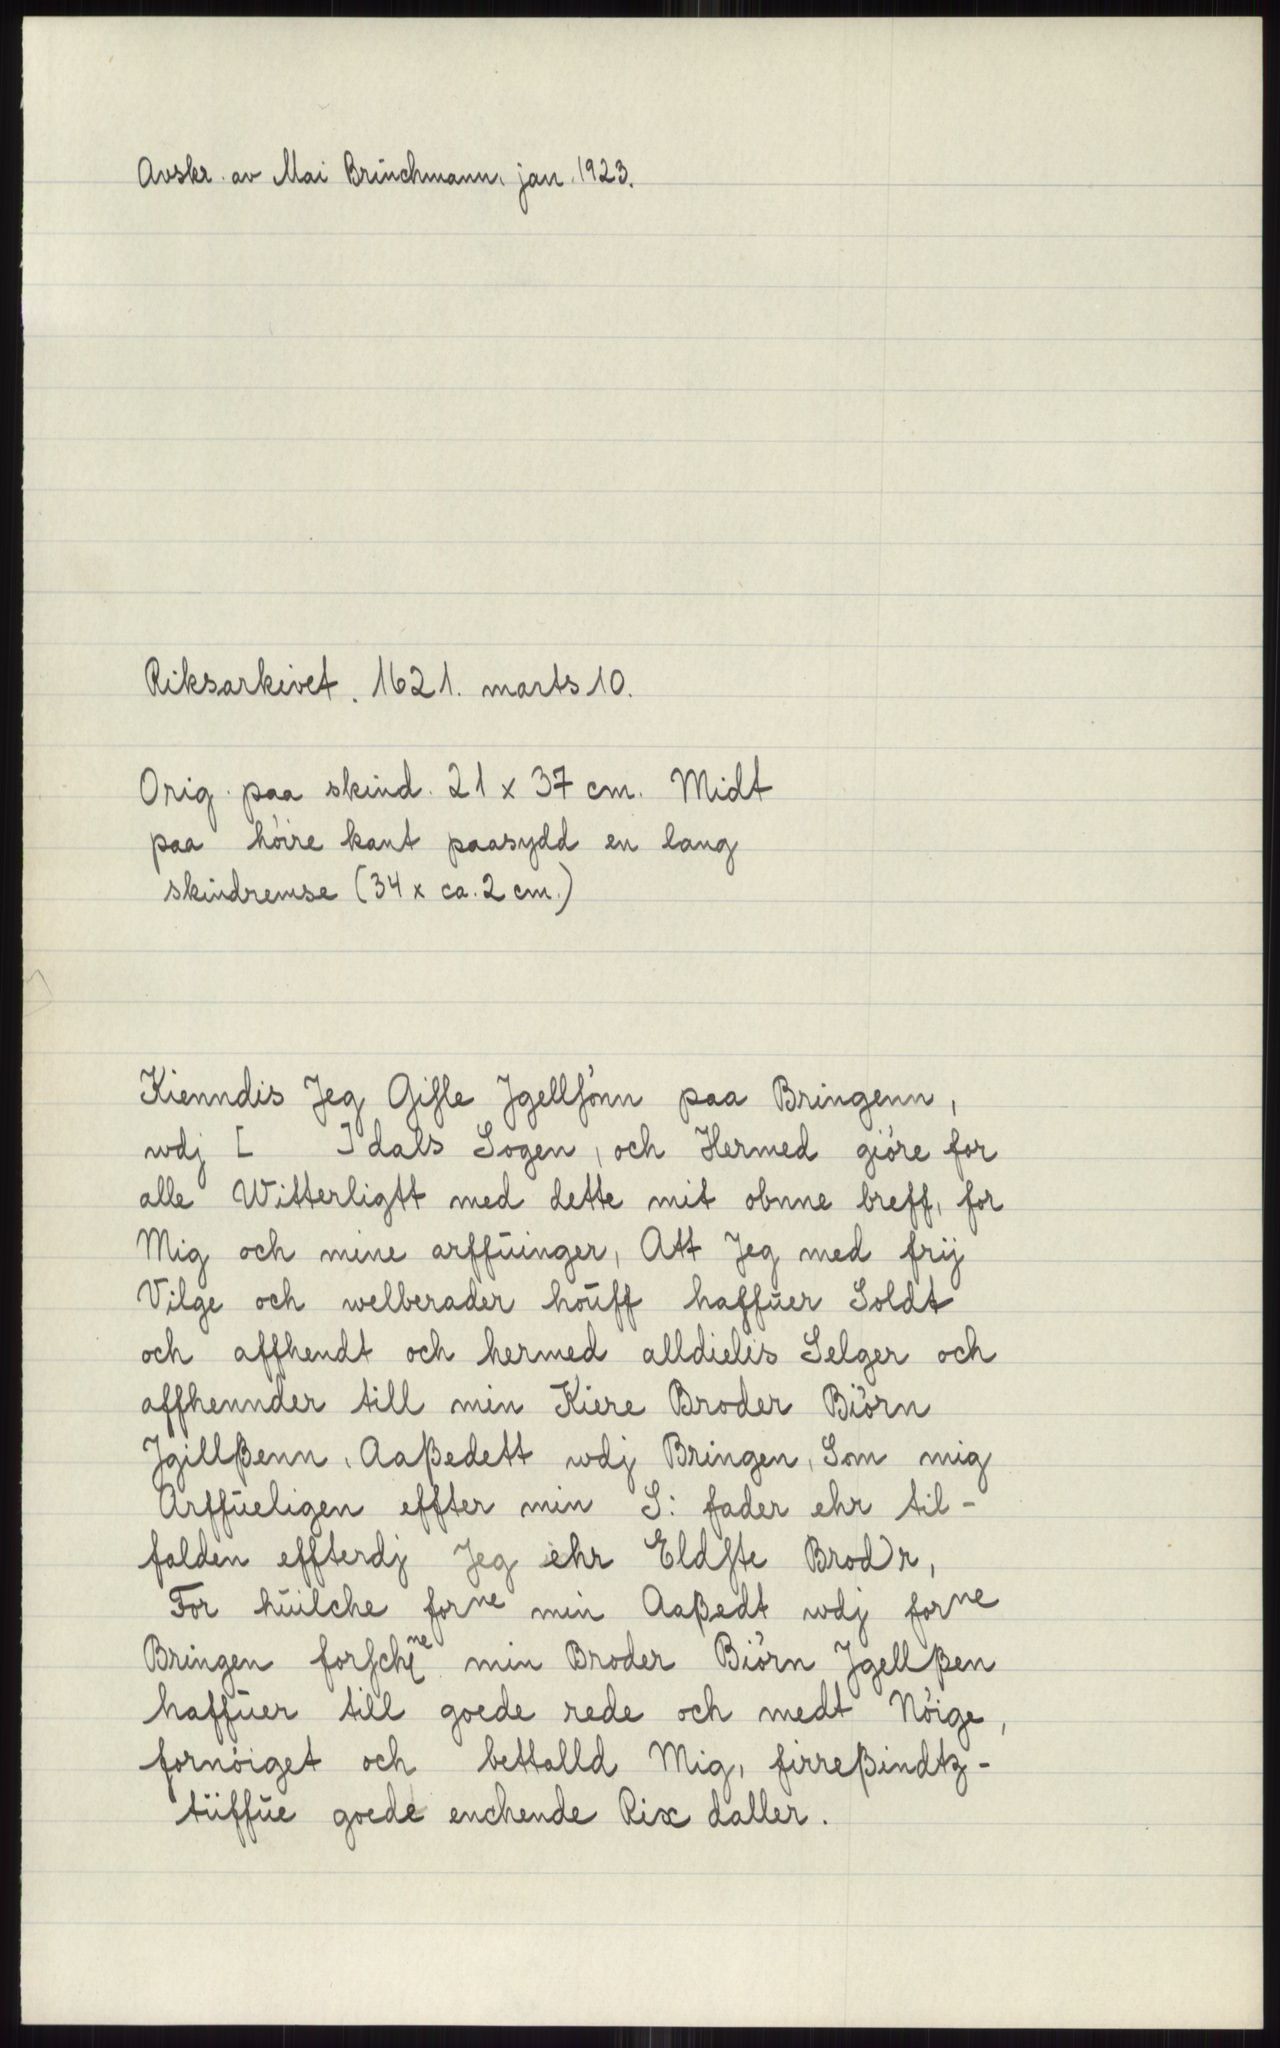 Avskr. av Mai Brünchmann, jan. 1923.
Riksarkivet. 1621. marts 10.
Orig. paa skind. 21 x 37 cm. Midt
paa höire kant paasydd en lang
skindremse (34 x ca. 2 cm.)
Kienndis Jeg Gisle Jgellsönn paa Bringenn,
wdj [ ] dals Sogen, och Hermed giöre for
alle Witterligtt med dette mit obnne breff, for
Mig och mine arffüinger, Att Jeg med frij
Vilge och welberader hoüff haffüer Soldt
och affhendt och hermed alldielis Selger och
affhennder till min Kiere Broder Biörn
Jgillßenn, Aaßedett wdj Bringen, Som mig
Arffüeligen effter min S: fader ehr til-
falden effterdj Jeg ehr Eldste Brodr,
For hüilche forne min Aaßedt wdj forne
Bringen min Broder Biörn Jgellßen
haffüer till goede rede och medt Nöige,
fornöiget och bettalld Mig, firreßindtz-
tüffüe goede enchende Rix daller.